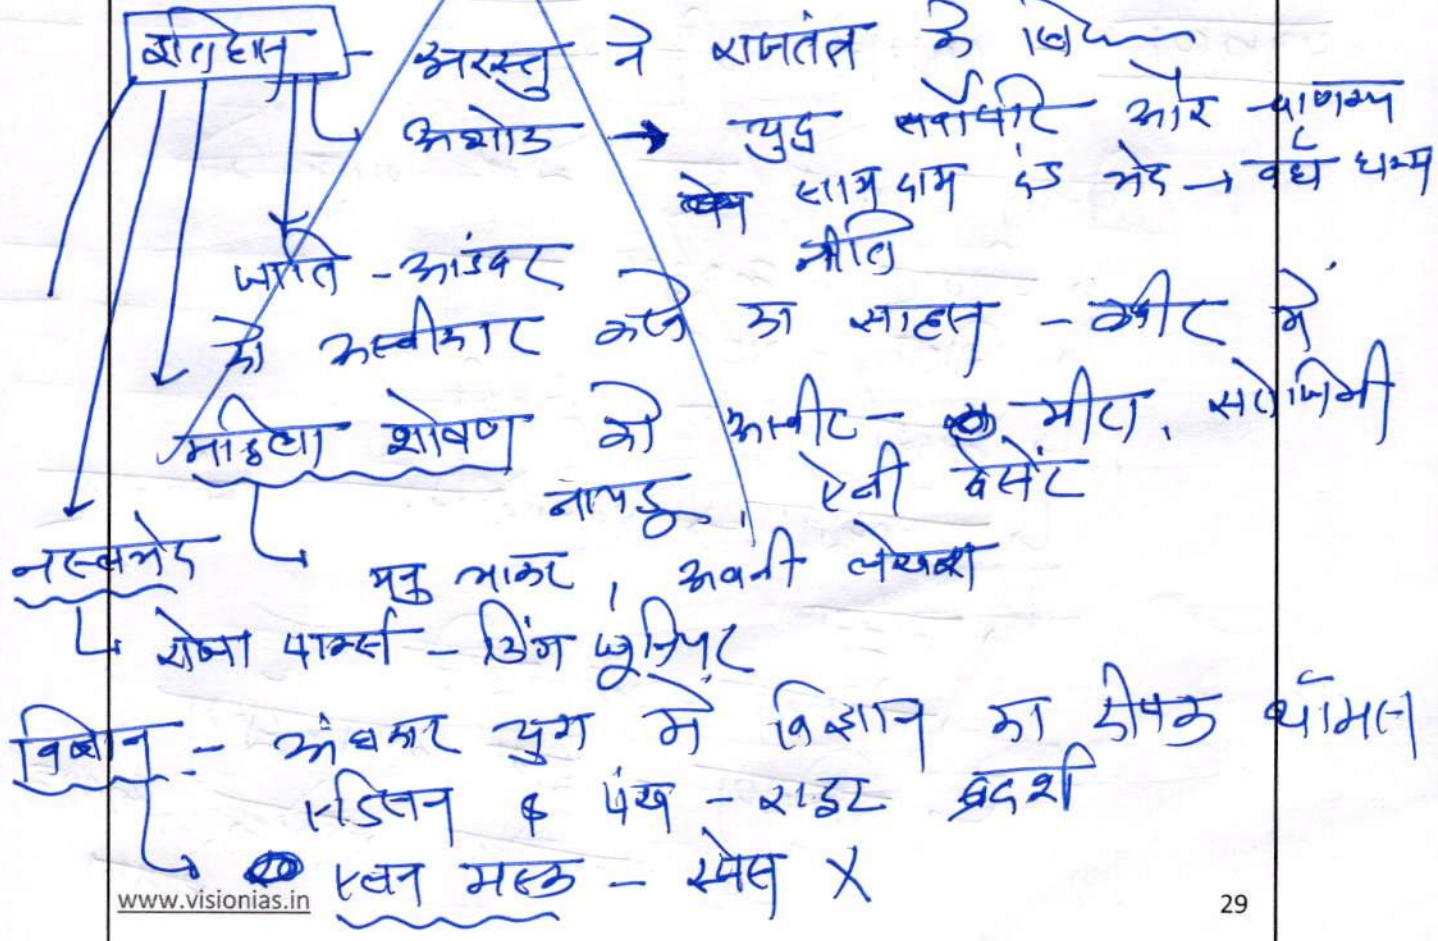 इतिहास - अरस्तु ने राजतंत्र के
अशोक → युद्ध और चाणक्य
साम दाम दंड भेद → धम्म
नीति
जाति - आडंबर
को अस्वीकार करने का साहस - कबीर ने
महिला शोषण को - मीरा, सरोजिनी
नायडू, ऐनी बेसेंट
नस्लभेद
मनु भाकर, अवनी लेखरा
रोजा पार्क्स - किंग जूनियर
विज्ञान - अंधकार युग में विज्ञान का दीपक थॉमस
एडिसन & पंख - राइट ब्रदर्श
एलन मस्क - स्पेस X
www.visionias.in
29